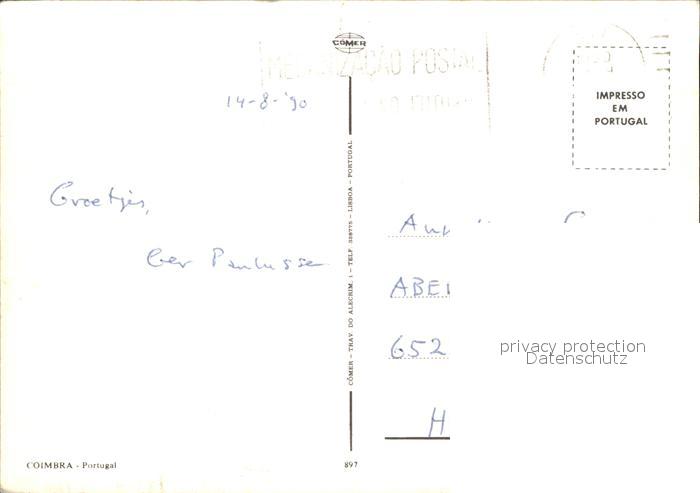 COMER
MECANIZAÇÃO POSTAL
14-8-'90
IMPRESSO
EM
PORTUGAL
Groetjes,
Ger Paulussen
COMER – TRAV. DO ALECRIM, 1 – TELF. 328775 – LISBOA – PORTUGAL
ABEL
652
H
privacy protection
Datenschutz
COIMBRA - Portugal
897